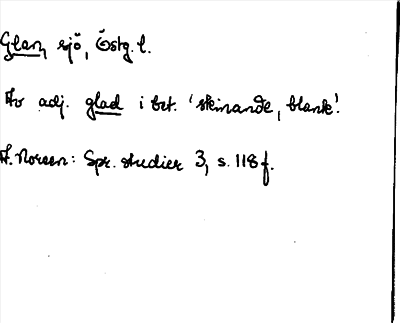 Glan, sjö, Östg. l.
Av adj. glad i bet. 'skinande, blank'.
A. Noreen: Spr. studier 3, s. 118 f.